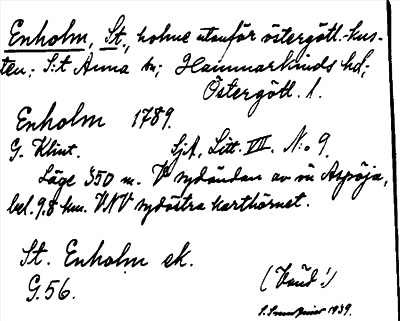 Enholm, St., holme utanför östergötl.-kus-
ten; S:t Anna sn; Hammarkinds hd;
Östergötl. l.
Enholm 1789.
G. Klint. SjA, Litt. VII. N:o 9.
Läge 350 m. V sydändan av ön Aspöja,
bel. 9,8 km. VNV sydöstra karthörnet.
St. Enholm ek.
G. 56.
1939.